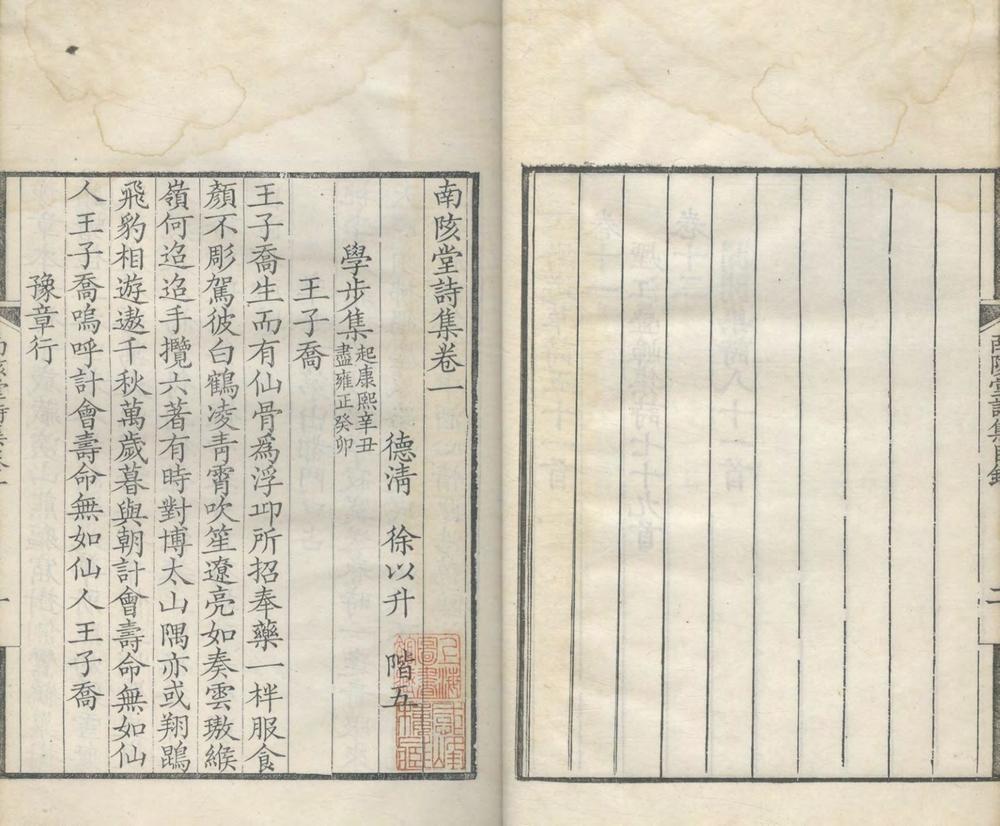 南陔堂詩集目錄
二
南陔堂詩集卷一
德清 徐以升 階五
學步集 起康熙辛丑
盡雍正癸卯
王子喬
王子喬生而有仙骨爲浮丘所招奉藥一柈服食
顏不彫駕彼白鶴凌青霄吹笙遼亮如奏雲璈緱
嶺何迢迢手攬六著有時對博太山隅亦或翔鵾
飛豹相遊遨千秋萬歲暮與朝計會壽命無如仙
人王子喬嗚呼計會壽命無如仙人王子喬
豫章行
一